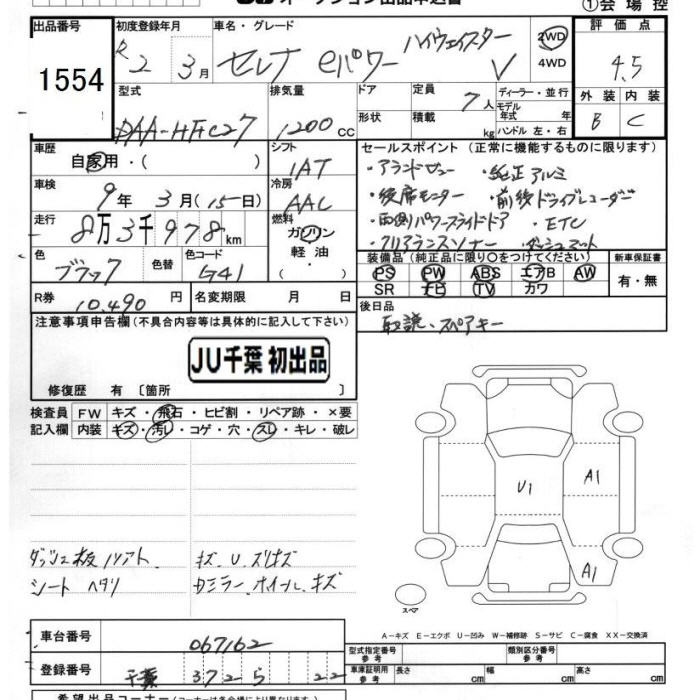 ①会場控
出品番号 初度登録年月 車名・グレード 評価点
1554 R2年 3月 セレナ eパワー ハイウェイスター V 2WD 4WD 4.5
型式 排気量 ドア 定員 7人 ディーラー・並行 外装 内装
DAA-HFC27 1200cc 形状 積載 kg モデル年式 年 ハンドル 左・右 B C
車歴 シフト セールスポイント (正常に機能するものに限ります)
自家用・( ) IAT ・アラウンドビュー ・純正アルミ
車検 冷房 ・後席モニター ・前後ドライブレコーダー
9年 3月(15日) AAC ・両側パワースライドドア ・ETC
走行 8万3千978km 燃料 ガソリン 軽油 ・クリアランスソナー ・ダッシュマット
装備品 (純正品に限り○をつけてください) 新車保証書
色 ブラック 色替 色コード G41 PS PW ABS エアB AW 有・無
SR ナビ TV カワ
R券 10,490円 名変期限 月 日 後日品
取説、スペアキー
注意事項申告欄 (不具合内容等は具体的に記入して下さい)
JU千葉 初出品
修復歴 有 〔箇所 〕
検査員 FW キズ・飛石・ヒビ割・リペア跡・×要
記入欄 内装 キズ・汚レ・コゲ・穴・スレ・キレ・破レ
U1 A1
A1
キズ、U、スリキズ
シート ヘタリ ホイール キズ
スペア
A-キズ E-エクボ U-凹み W-補修跡 S-サビ C-腐食 XX-交換済
車台番号 067162
型式指定番号 参考 類別区分番号 参考
登録番号 千葉 372 ら 22
車庫証明用 参考 長さ cm 幅 cm 高さ cm
希望出品コーナー